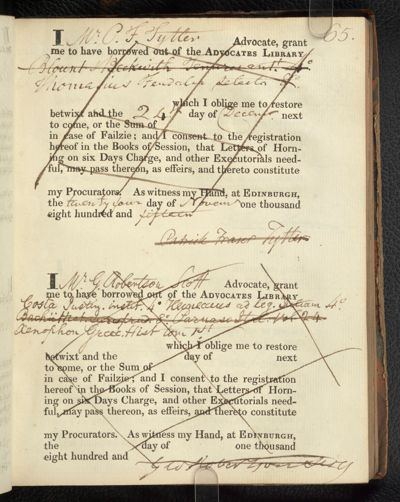 65.
I Mr. P. F. Tytler Advocate, grant
me to have borrowed out of the ADVOCATES LIBRARY
Blount Beckwith 4o
Thomasius Feudalia selecta 8o
which I oblige me to restore
betwixt and the 24 day of Decemr next
to come, or the Sum of
in case of Failzie; and I consent to the registration
hereof in the Books of Session, that Letters of Horn-
ing on six Days Charge, and other Executorials need-
ful, may pass thereon, as effeirs, and thereto constitute
my Procurators. As witness my Hand, at EDINBURGH,
the twenty four day of Novemr one thousand
eight hundred and fifteen
Patrick Fraser Tytler
I Mr. G. Robertson Scott Advocate, grant
me to have borrowed out of the ADVOCATES LIBRARY
Costa Justin. Instit. 4o Heineccius ad Leg. Juliam 4o
Bachii Hist. 8o
Xenophon Græce Hist tom 1st
which I oblige me to restore
betwixt and the day of next
to come, or the Sum of
in case of Failzie; and I consent to the registration
hereof in the Books of Session, that Letters of Horn-
ing on six Days Charge, and other Executorials need-
ful, may pass thereon, as effeirs, and thereto constitute
my Procurators. As witness my Hand, at EDINBURGH,
the day of one thousand
eight hundred and
Geo Robertson Scott